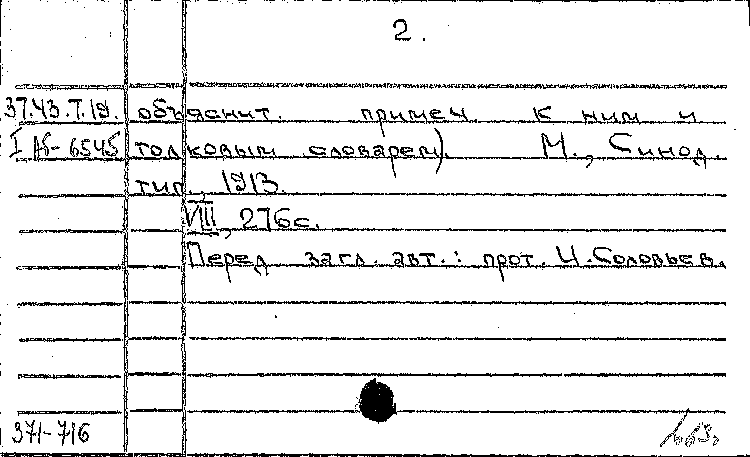 2.
37.43.7.19. объяснит. примеч. к ним и
I Аб-6545 толковым словарем). М., Синод.
тип., 1913.
VIII, 276с.
Перед загл. авт.: прот. И. Соловьев.
371-716